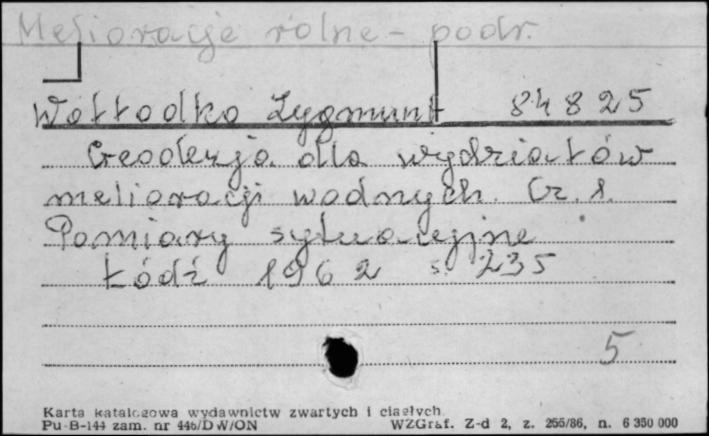 Melioracje rolne - podr.
Wołłodko Zygmunt 84825
Geodezja dla wydziałów
melioracji wodnych. Cz. 1.
Pomiary sytuacyjne
Łódź 1962 s. 235
5
Karta katalogowa wydawnictw zwartych i ciągłych.
Pu-B-144 zam. nr 446/DW/ON WZGraf. Z-d 2, z. 255/86, n. 6 350 000